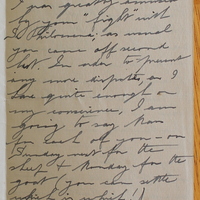 I was greatly amused
by your "fight" with
St. Philomena; as usual
you came off second
best. In order to prevent
any more disputes, as I
have quite enough on
my conscience, I am
going to say Mass
for each of you — on
Sunday next for the
sheep & Monday for the
goat (you can settle
which is which!)